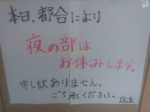 本日、都合により
夜の部は
お休みします。
申し訳ありません。
ご了承ください。
店主